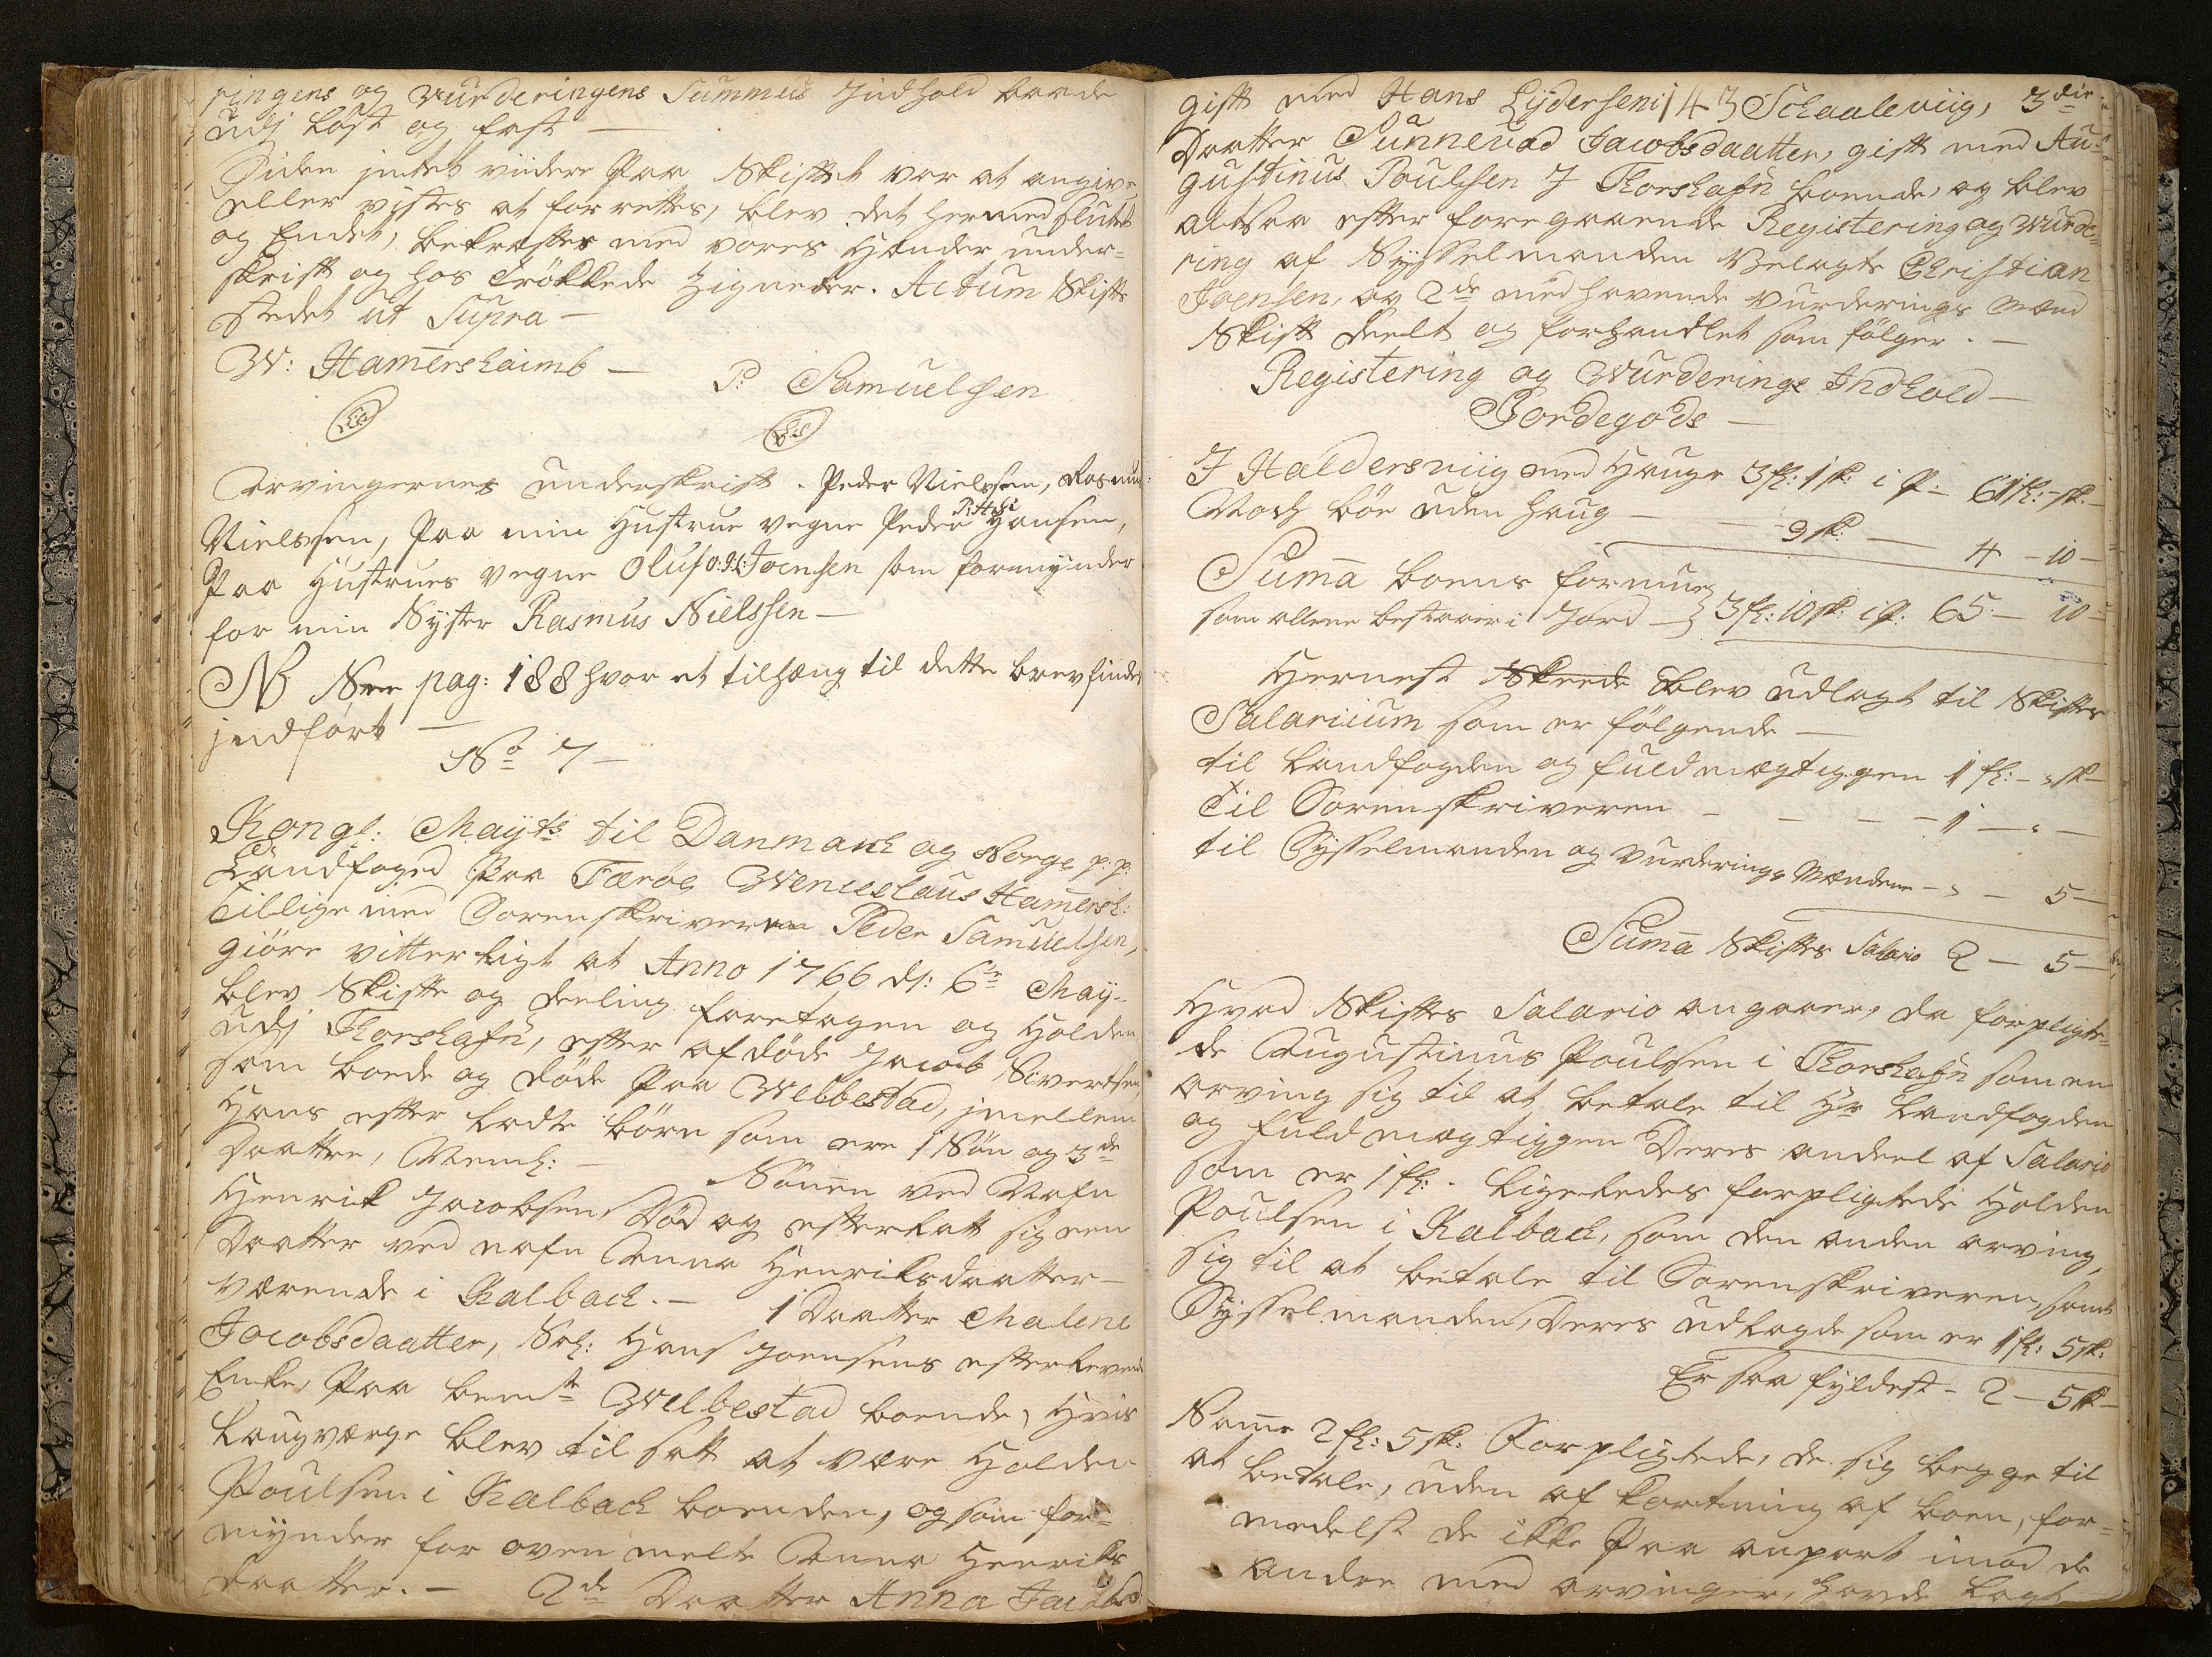 ringens og Wurderingens Summus Indhold baade
udj Løst og fast —
Siden intet vidre Paa Skiftet var at angive
eller vistes at forrettes, blev det hermed sluttet
og Endet, bekræftes med vores Hænder under-
skrift og hos trökkede Zigneder. Actum Skifte
stedet ut Supra —
W: Hamershaimb — P: Samuelsen
Arvingernes underskrift. Peder Nielssen, Rasmus
Nielssen, Paa min Hustrue vegne Peder P:H:S: Hansen,
Paa Hustrues vegne Oluf O:I:S: Joensen som formynder
for min Syster Rasmus Nielssen —
NB See pag: 188 hvor et tilhæng til dette brev findes
indført —
No 7 —
Kongl: Mayts til Danmarck og Norge p. p.
Landfoged Paa Færöe Wenceslaus Hamersh:
tillige med Sorenskriveren Peder Samuelsen,
giöre vitterligt at Anno 1766 d: 6te Maÿ-
blev Skifte og deeling foretagen og Holden
udj Thorshafn, efter afdöde Jacob Sivertsen,
som boede og döde Paa Welbestad, imellem
Hans efter ladte börn som ere 1 Sön og 3de
Daattre, Neml: — Sönen ved Nafn
Henrik Jacobsen, Död og efterlatt sig een
Daatter ved nafn Anna Henriksdaatter —
værende i Kalback. — 1 Daatter Malene
Jacobsdaatter, Sal: Hans Joensens efterlevende
Enke, Paa bemte Welbestad boende, Hvis
Laugværge blev til satt at være Halden
Poulsen i Kalback boenden, og som for-
mynder for oven melte Anna Henriks
daatter. — 2de Daatter Anna Jacobsd:
gift med Hans Lÿdersen i Schaaleviig, 3die
Daatter Sunnevad Jacobsdaatter, gift med Au-
gustinus Poulsen I Thorshafn boende, og blev
altsaa efter foregaaende Registering og Wurde-
ring af Sÿsselmanden Velagte Christian
Joensen, og 2de med havende Vurderings Mænd
Skift deelt og forhandlet som fölger. —
Registering og Wurderings Indhold —
Jordegods —
I Haldersviig med Hauge 3 fl: 1 sk: i P: — 61 fl: — sk: —
Noch böe uden Haug — 9 sk: — 4 — 10 —
Suma boens formue
som allene bestaar i Jord — 3 fl: 10 sk: i P: 65 — 10 —
Hernest Skeede blev udlagt til Skiftes
Salariium som er fölgende —
til Landfogden og fuldmægtiggen 1 fl: — " sk —
til Sorenskriveren — — — — 1 — " —
til Sysselmanden og Vurderings Mændene — " — 5 —
Suma Skiftes Salario 2 — 5 —
Hvad Skiftes Salario angaaer, da forpligte-
de Augustinus Poulsen i Thorshafn som en
arving sig til at betale til Hr Landfogden
og fuldmægtiggen Deres andeel af Salario
som er 1 fl: . Ligeledes forpligtede Halden
Poulsen i Kalback, som den anden arving,
sig til at betale til Sorenskriveren, samt
Sysselmanden, Deres udlagde som er 1 fl: 5 sk:
Er saa fyldest — 2 — 5 sk —
Same 2 fl: 5 sk: Forpligtede, de sig begge til
at betale, uden af kortning af boen, for-
medelst de ikke Paa anpart imod de
andre med arvinger, havde Lagt